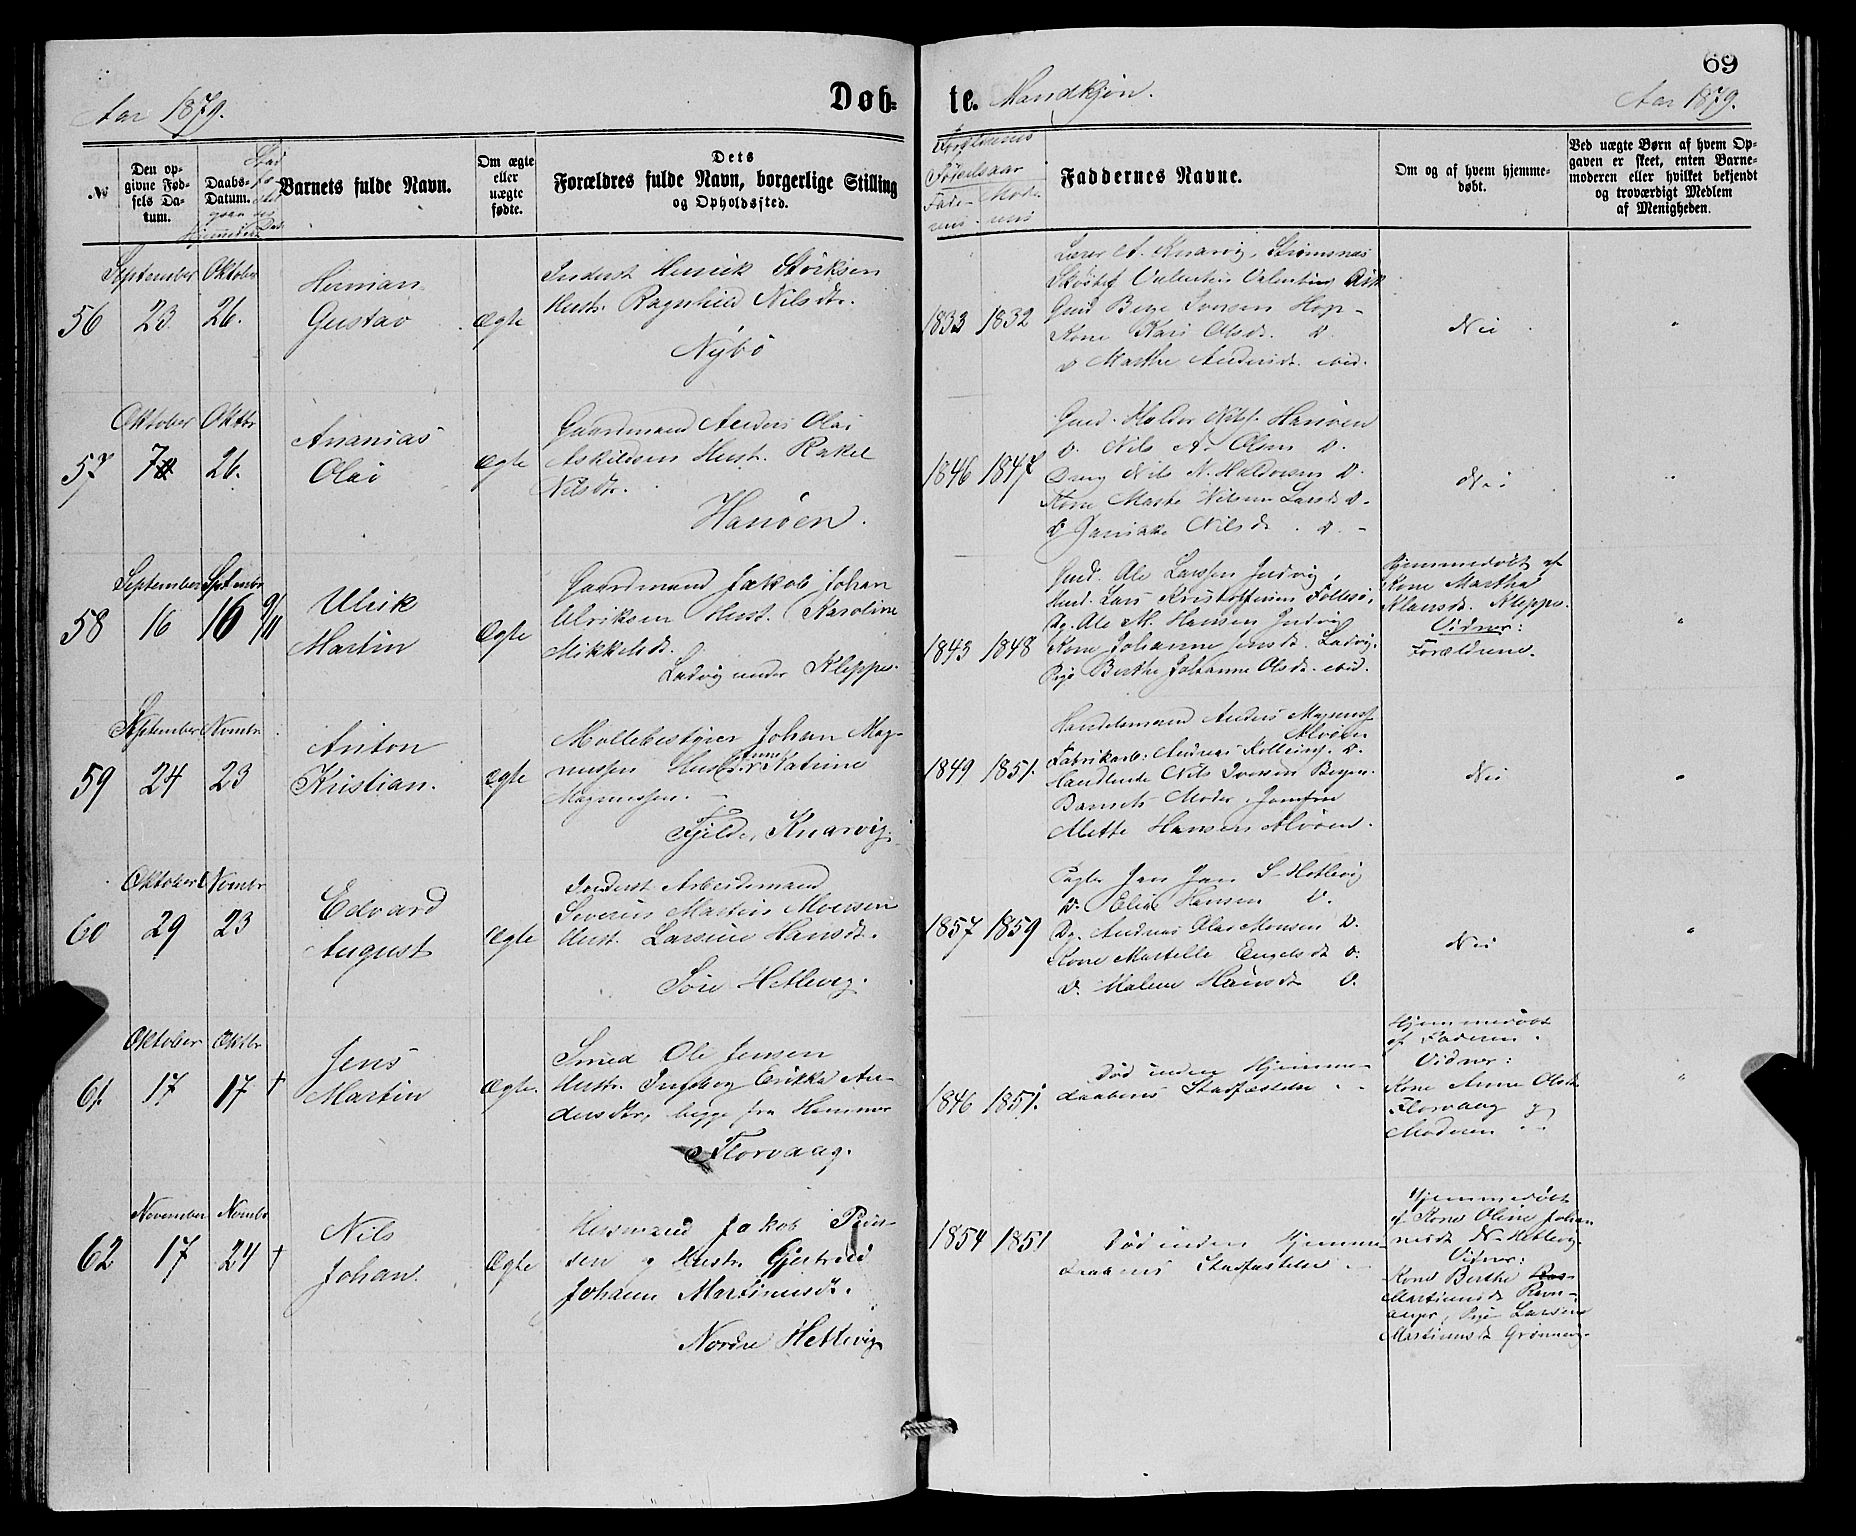 69
Aar 1879.
Døb-
te. Mandkjøn.
Aar 1879.
№
Den op-
givne Fød-
sels Da-
tum.
Daabs-
Datum.
Barnets fulde Navn.
Om ægte
eller
uægte
fødte.
Dets
Forældres fulde Navn, borgerlige Stilling
og Opholdssted.
Forældrenes
Fødselsaar
Fade-
rens
Mode-
rens
Faddernes Navne.
Om og af hvem hjemme-
døbt.
Ved uægte Børn af hvem Op-
gaven er skeet, enten Barne-
moderen eller hvilket bekjendt
og troværdigt Medlem
af Menigheden.
56
September
23
Oktober
26.
Herman
Gustav
Ægte
Inderst Henrik Størksen
Hustr. Ragnhild Nilsdtr.
Nybø
1833 1832
Lærer A. Knarvig, Strømsnæs
Valentin Valentins Ask
Gmd Berge Iversen Hop
Kone Kari Olsdt. D.
D Marthe Andersdt. ibid.
Nei
57
Oktober
7
Oktbr
26.
Ananias
Olai
Ægte
Gaardmand Anders Olai
Askildsen Hust. Rakel
Nilsdtr.
Hanøen.
1846 1847
Gmd. Haldor Nilss. Hanøen
D. Nils A. Olsen D.
Dreng Nils N. Haldorsen D.
Kone Marte Nilsen Larsdt D.
D Jannikke Nilsdt. D.
Nei
58
September
16
Septembr
16 9/11
Ulrik
Martin
Ægte
Gaardmand Jakob Johan
Ulriksen Hust. Karoline
Mikkelsdt.
Ladvig under Kleppe.
1843 1848
Gmd. Ole Larssen Judvig,
Gmd. Lars Kristoffersen Follesø,
Dg. Ole M. Hansen Judvig
Kone Johanne Jensdt. Ladvig.
Pige Berthe Johanne Olsdt. ibid.
Hjemmedøbt af
Kone Martha
Klausdt. Kleppe.
Vidner:
Forældrene.
59
September
24
Novmbr
23
Anton
Kristian.
Ægte
Møllebestyrer Johan Mag-
nussen Hustr. Katrine
Magnussen.
Fjeldr, Knarvig.
1849 1851.
Handelsmand Anders Magnuss.
Alvøen
Fabrikarb: Andreas Kolleins. D.
Handlende Nils Iversen Bergen.
Barnets Moder, Jomfru
Mette Hansen Alvøen.
Nei
60
Oktober
29
Novmbr
23
Edvard
August
Ægte
Inderst Arbeidsmand
Severin Martin Monsen
Hust. Larsine Hansdt.
Søre Hetlevig.
1857 1859
Jan Jan S. Hetlevig
D. Elias Hansen D.
Dg. Andreas Olai Monsen D.
Kone Martelle Engelsdt D.
D. Malene Hansdt D.
Nei
61.
Oktober
17
Oktbr
17 †
Jens
Martin
Ægte.
Smed Ole Jensen
Hustr. Ingeborg Erikka An-
dersdtr, begge fra Hammer
Florvaag.
1846 1851.
Død inden Hjemme-
daabens Stadfæstelse.
Hjemmedøbt
af Faderen.
Vidner:
Kone Anne Olsdt.
Florvaag og
Moderen
62
November
17
Novmbr
24 †
Nils
Johan.
Ægte
Husmand Jakob
og Hustr. Gjertrud
Johanne Martinusdt.
Nordre Hetlevig
1854 1851
Død inden Hjemme-
daabens Stadfæstelse.
Hjemmedøbt
af Kone Oline Johan
nesdt N. Hetlevig.
Vidner:
Kone Berthe
Martinusdt Ravn-
anger, Pige Larsine
Martinusdt Grønneng.